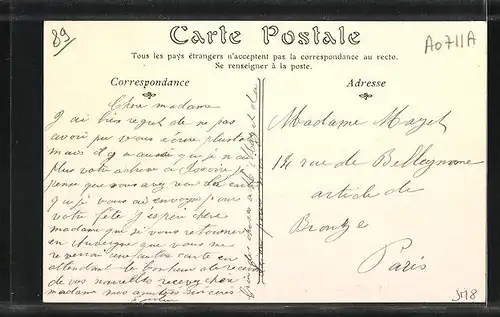 89
Carte Postale
A0711A
Tous les pays étrangers n'acceptent pas la correspondance au recto.
Se renseigner à la poste.
Correspondance
Adresse
Chere madame
J ai bien regret de ne pas
avoir pu vous écrire plustot
mais il y a aussi que je n ai
plus votre adresse a je
pense que vous avez reçu la carte
que je vous ai envoyé pour
votre fête J espère chere
madame que si vous retournez
en Auvergne que vous me
une autre carte en
attendant le bonheur de recevoir
de vos nouvelles recevez chere
madame mes amitiés sincères
Madame Mayet
14 rue de Belleyme
article de
Bronze
Paris